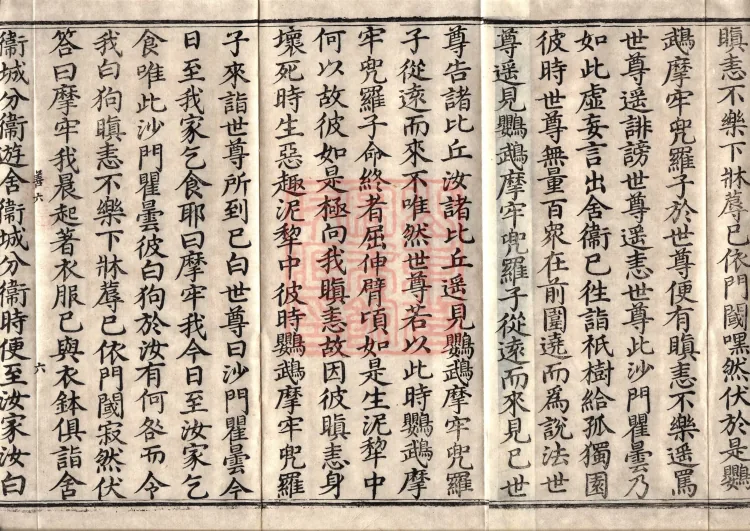 瞋恚不樂下牀蓐已依門閾嘿然伏於是鸚
鵡摩牢兜羅子於世尊便有瞋恚不樂遥罵
世尊遥誹謗世尊遥恚世尊此沙門瞿曇乃
如此虛妄言出舍衞已徃詣祇樹給孤獨園
彼時世尊無量百衆在前圍遶而爲説法世
尊遥見鸚鵡摩牢兜羅子從遠而來見已世
尊告諸比丘汝諸比丘遥見鸚鵡摩牢兜羅
子從遠而來不唯然世尊若以此時鸚鵡摩
牢兜羅子命終者屈伸臂頃如是生泥犂中
何以故彼如是極向我瞋恚故因彼瞋恚身
壞死時生惡趣泥犂中彼時鸚鵡摩牢兜羅
子來詣世尊所到已白世尊曰沙門瞿曇今
日至我家乞食耶曰摩牢我今日至汝家乞
食唯此沙門瞿曇彼白狗於汝有何咎而令
我白狗瞋恚不樂下牀蓐已依門閾寂然伏
答曰摩牢我晨起著衣服已與衣鉢俱詣舍
善六 六
衞城分衞遊舍衞城分衞時便至汝家汝白